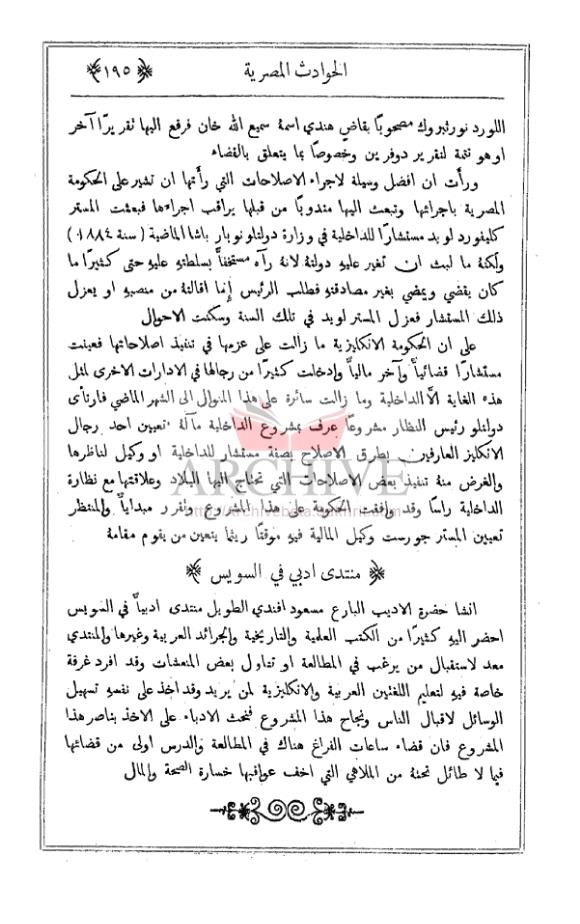 الحوادث المصرية
﴿١٩٥﴾
اللورد نورثبروك مصحوبًا بقاضٍ هندي اسمهُ سميع الله خان فرفع اليها تقريرًا آخر
او هو تتمة لتقرير دوفرين وخصوصًا بما يتعلق بالقضاء
ورأت ان افضل وسيلة لاجراء الاصلاحات التي رأتها ان تشير على الحكومة
المصرية باجرائها وتبعث اليها مندوبًا من قبلها يراقب اجراءها فبعثت المستر
كليفورد لويد مستشارًا للداخلية في وزارة دولتلو نوبار باشا الماضية (سنة ١٨٨٤)
ولكنهُ ما لبث ان تغير عليهِ دولتهُ لانهُ رآه مستخفًّا بسلطتهِ عليهِ حتى كثيرًا ما
كان يقضي ويمضي بغير مصادقتهِ فطلب الرئيس إِما اقالتهُ من منصبهِ او يعزل
ذلك المستشار فعزل المستر لويد في تلك السنة وسكنت الاحوال
على ان الحكومة الانكليزية ما زالت على عزمها في تنفيذ اصلاحاتها فعينت
مستشارًا قضائيًّا وآخر ماليًّا وادخلت كثيرًا من رجالها في الادارات الاخرى لمثل
هذه الغاية الَّا الداخلية وما زالت سائرة على هذا المنوال الى الشهر الماضي فارتأى
دولتلو رئيس النظار مشروعًا عرف بمشروع الداخلية مآلهُ تعيين احد رجال
الانكليز العارفين بطرق الاصلاح بصفة مستشار للداخلية او وكيل لناظرها
والغرض منهُ تنفيذ بعض الاصلاحات التي تحتاج اليها البلاد وعلاقتها مع نظارة
الداخلية راسًا وقد وافقت الحكومة على هذا المشروع وتقرر مبدايًّا والمنتظر
تعيين المستر جورست وكيل المالية فيهِ موقتًا ريثما يتعين من يقوم مقامهُ
ARCHIVE
http://archivebeta.sakhrit.com
﴿ منتدى ادبي في السويس ﴾
انشا حضرة الاديب البارع مسعود افندي الطويل منتدى ادبيًّا في السويس
احضر اليهِ كثيرًا من الكتب العلمية والتاريخية والجرائد العربية وغيرها والمنتدي
معد لاستقبال من يرغب في المطالعة او تناول بعض المنعشات وقد افرد غرفة
خاصة فيهِ لتعليم اللغتين العربية والانكليزية لمن يريد وقد اخذ على نفسهِ تسهيل
الوسائل لاقبال الناس ونجاح هذا المشروع فنحث الادباء على الاخذ بناصر هذا
المشروع فان قضاء ساعات الفراغ هناك في المطالعة والدرس اولى من قضائها
فيما لا طائل تحتهُ من الملاهي التي اخف عواقبها خسارة الصحة والمال